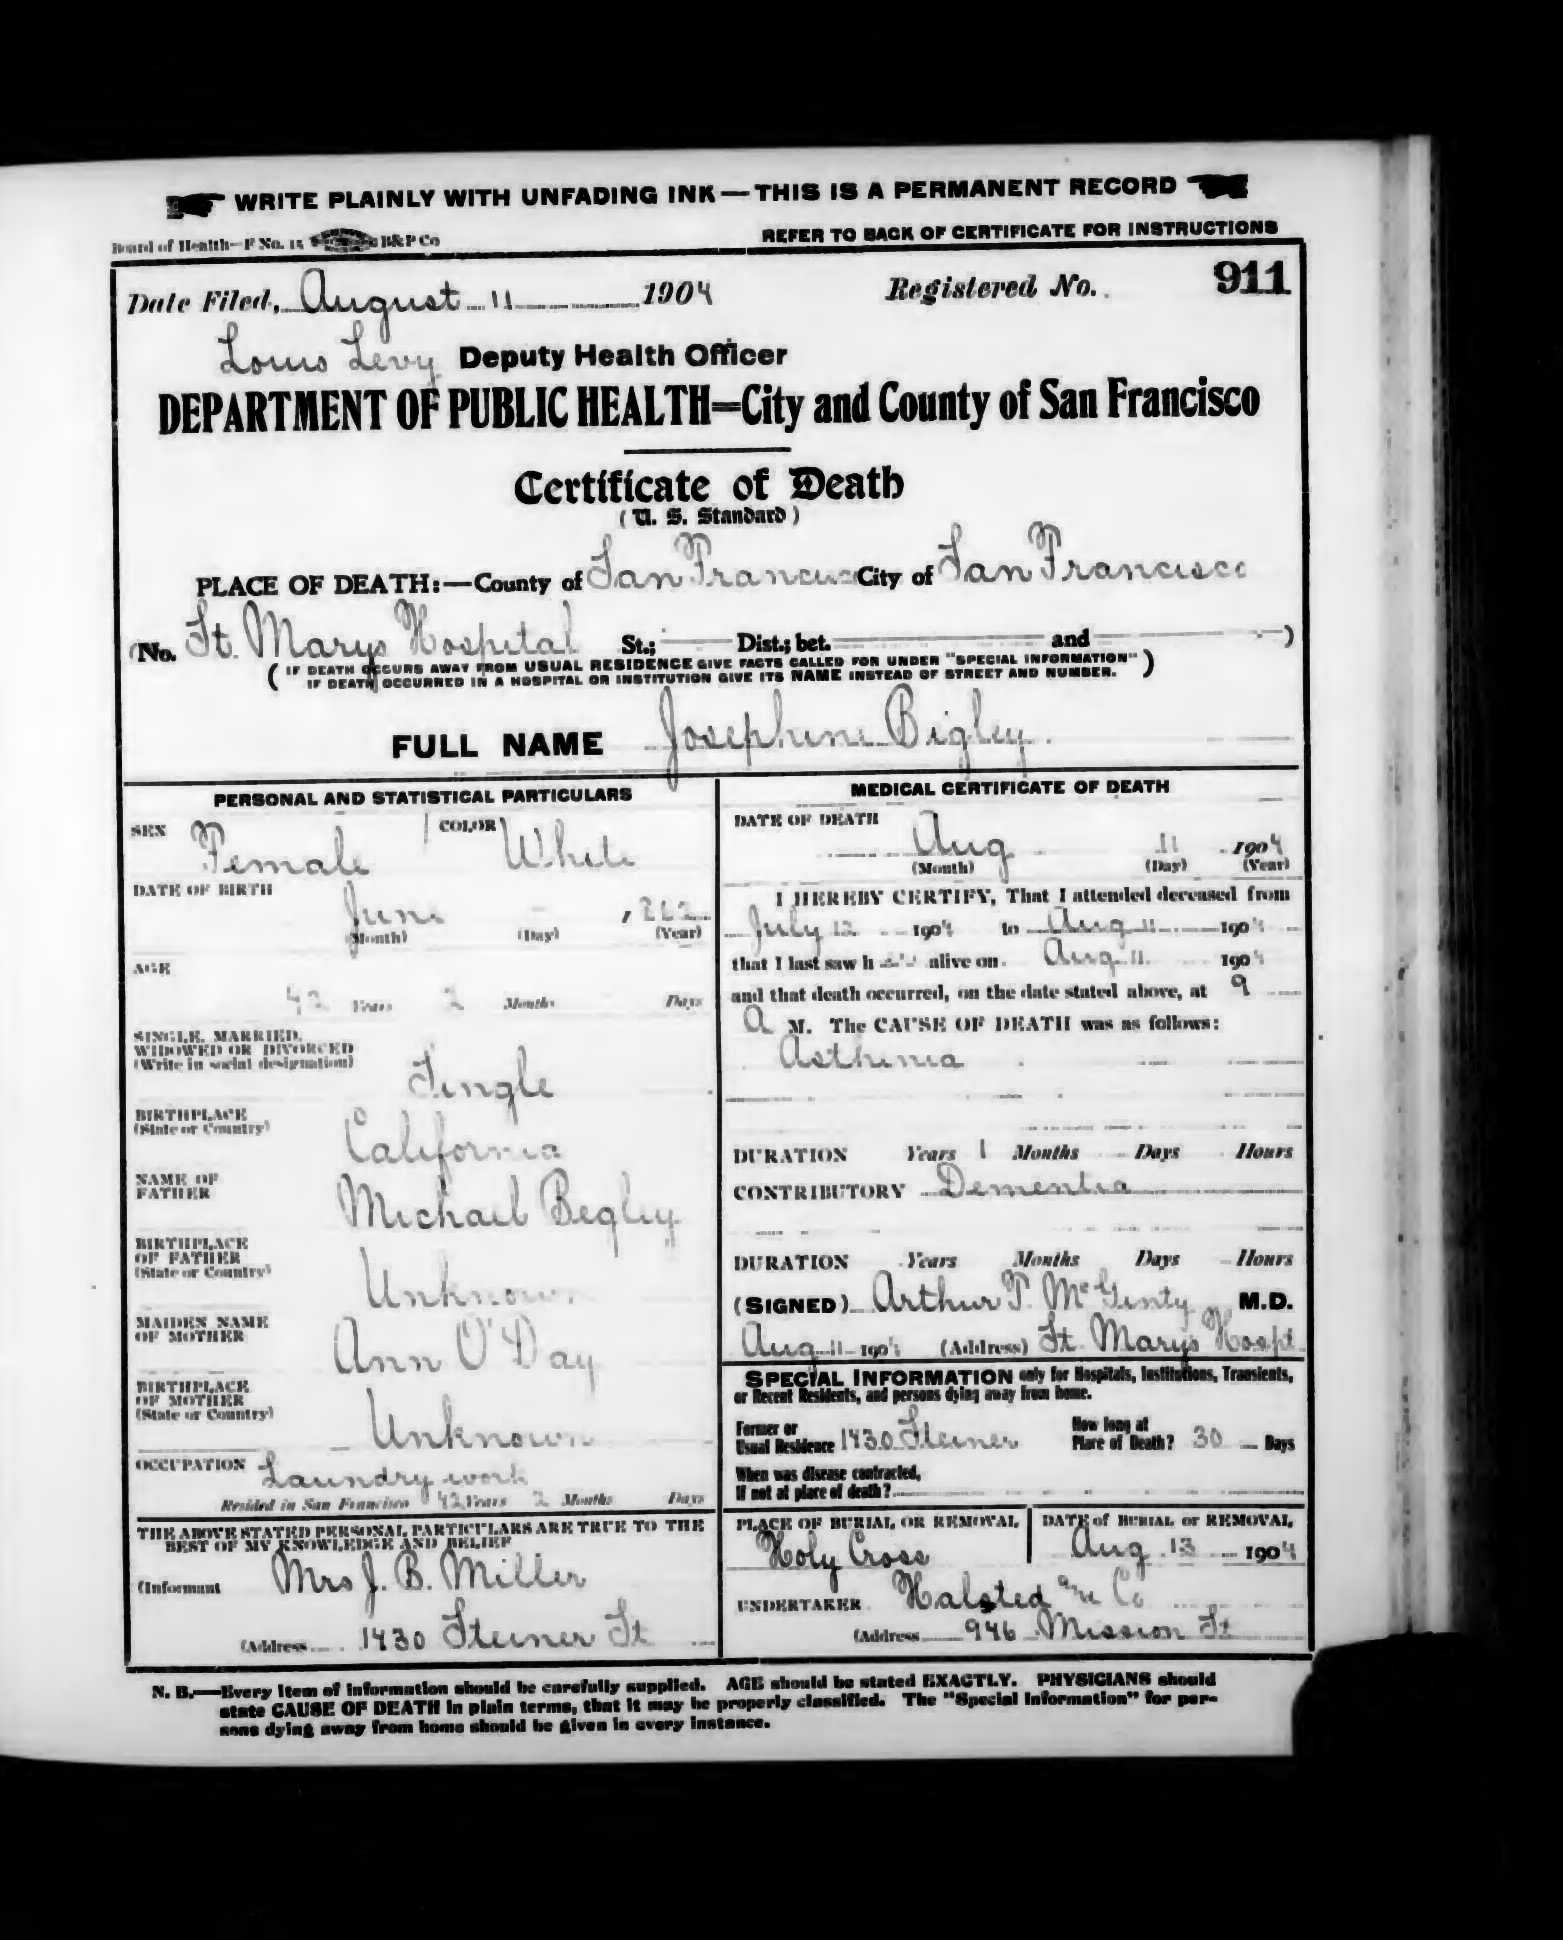 WRITE PLAINLY WITH UNFADING INK—THIS IS A PERMANENT RECORD
Board of Health—F No. 15 B&P Co
REFER TO BACK OF CERTIFICATE FOR INSTRUCTIONS
Date Filed, August 11 1904 Registered No. 911
Louis Levy Deputy Health Officer
DEPARTMENT OF PUBLIC HEALTH=City and County of San Francisco
Certificate of Death
(U. S. Standard)
PLACE OF DEATH:—County of San Francisco City of San Francisco
(No. St. Marys Hospital St.; Dist.; bet. and )
( IF DEATH OCCURS AWAY FROM USUAL RESIDENCE GIVE FACTS CALLED FOR UNDER "SPECIAL INFORMATION" )
IF DEATH OCCURRED IN A HOSPITAL OR INSTITUTION GIVE ITS NAME INSTEAD OF STREET AND NUMBER.
FULL NAME Josephine Bigley
PERSONAL AND STATISTICAL PARTICULARS
SEX Female COLOR White
DATE OF BIRTH
June
(Month) (Day) (Year)
AGE
42 Years 2 Months Days
SINGLE, MARRIED,
WIDOWED OR DIVORCED
(Write in social designation)
Single
BIRTHPLACE
(State or Country)
California
NAME OF
FATHER
Michael Begley
BIRTHPLACE
OF FATHER
(State or Country)
Unknown
MAIDEN NAME
OF MOTHER
Ann O'Day
BIRTHPLACE
OF MOTHER
(State or Country)
Unknown
OCCUPATION Laundry work
Resided in San Francisco 42 Years 2 Months Days
THE ABOVE STATED PERSONAL PARTICULARS ARE TRUE TO THE
BEST OF MY KNOWLEDGE AND BELIEF
(Informant Mrs J. B. Miller
(Address 1430 Steiner St
MEDICAL CERTIFICATE OF DEATH
DATE OF DEATH
Aug 11 1904
(Month) (Day) (Year)
I HEREBY CERTIFY, That I attended deceased from
July 12 1904 to Aug 11 1904
that I last saw h alive on Aug 11 1904
and that death occurred, on the date stated above, at 9
A M. The CAUSE OF DEATH was as follows:
Asthenia
DURATION Years 1 Months Days Hours
CONTRIBUTORY Dementia
DURATION Years Months Days Hours
(SIGNED) Arthur T. McGinty M.D.
Aug 11 1904 (Address) St. Marys Hospt
SPECIAL INFORMATION only for Hospitals, Institutions, Transients,
or Recent Residents, and persons dying away from home.
Former or
Usual Residence 1430 Steiner
How long at
Place of Death? 30 Days
When was disease contracted,
If not at place of death?
PLACE OF BURIAL OR REMOVAL
Holy Cross
DATE of BURIAL or REMOVAL
Aug 13 1904
UNDERTAKER Halsted and Co
(Address 946 Mission St
N. B.—Every Item of information should be carefully supplied. AGE should be stated EXACTLY. PHYSICIANS should
state CAUSE OF DEATH in plain terms, that it may be properly classified. The "Special Information" for per-
sons dying away from home should be given in every instance.